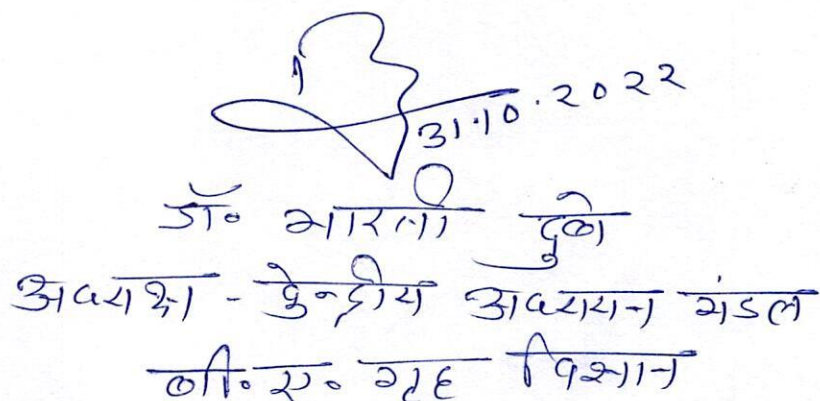 31.10.2022
डॉ० भारती दुबे
अध्यक्ष - केन्द्रीय अध्ययन मंडल
बी.ए. गृह विज्ञान